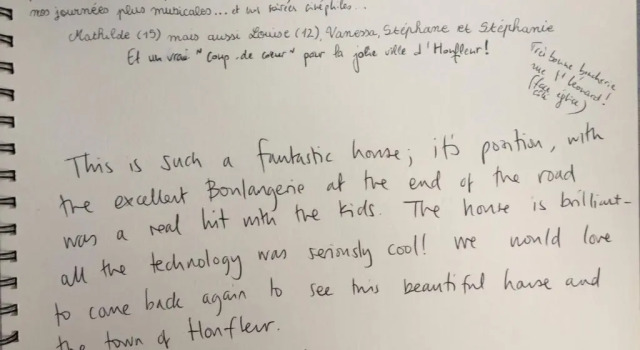 nos journées plus musicales... et nos soirées cinéphiles..
Mathilde (15) mais aussi Louise (12), Vanessa, Stéphane et Stéphanie
Et un vrai "coup de cœur" pour la jolie ville d'Honfleur!
Très bonne boucherie
rue St Léonard!
(face église)
This is such a fantastic house; it's position, with
the excellent Boulangerie at the end of the road
was a real hit with the kids. The house is brilliant-
all the technology was seriously cool! We would love
to come back again to see this beautiful house and
the town of Honfleur.